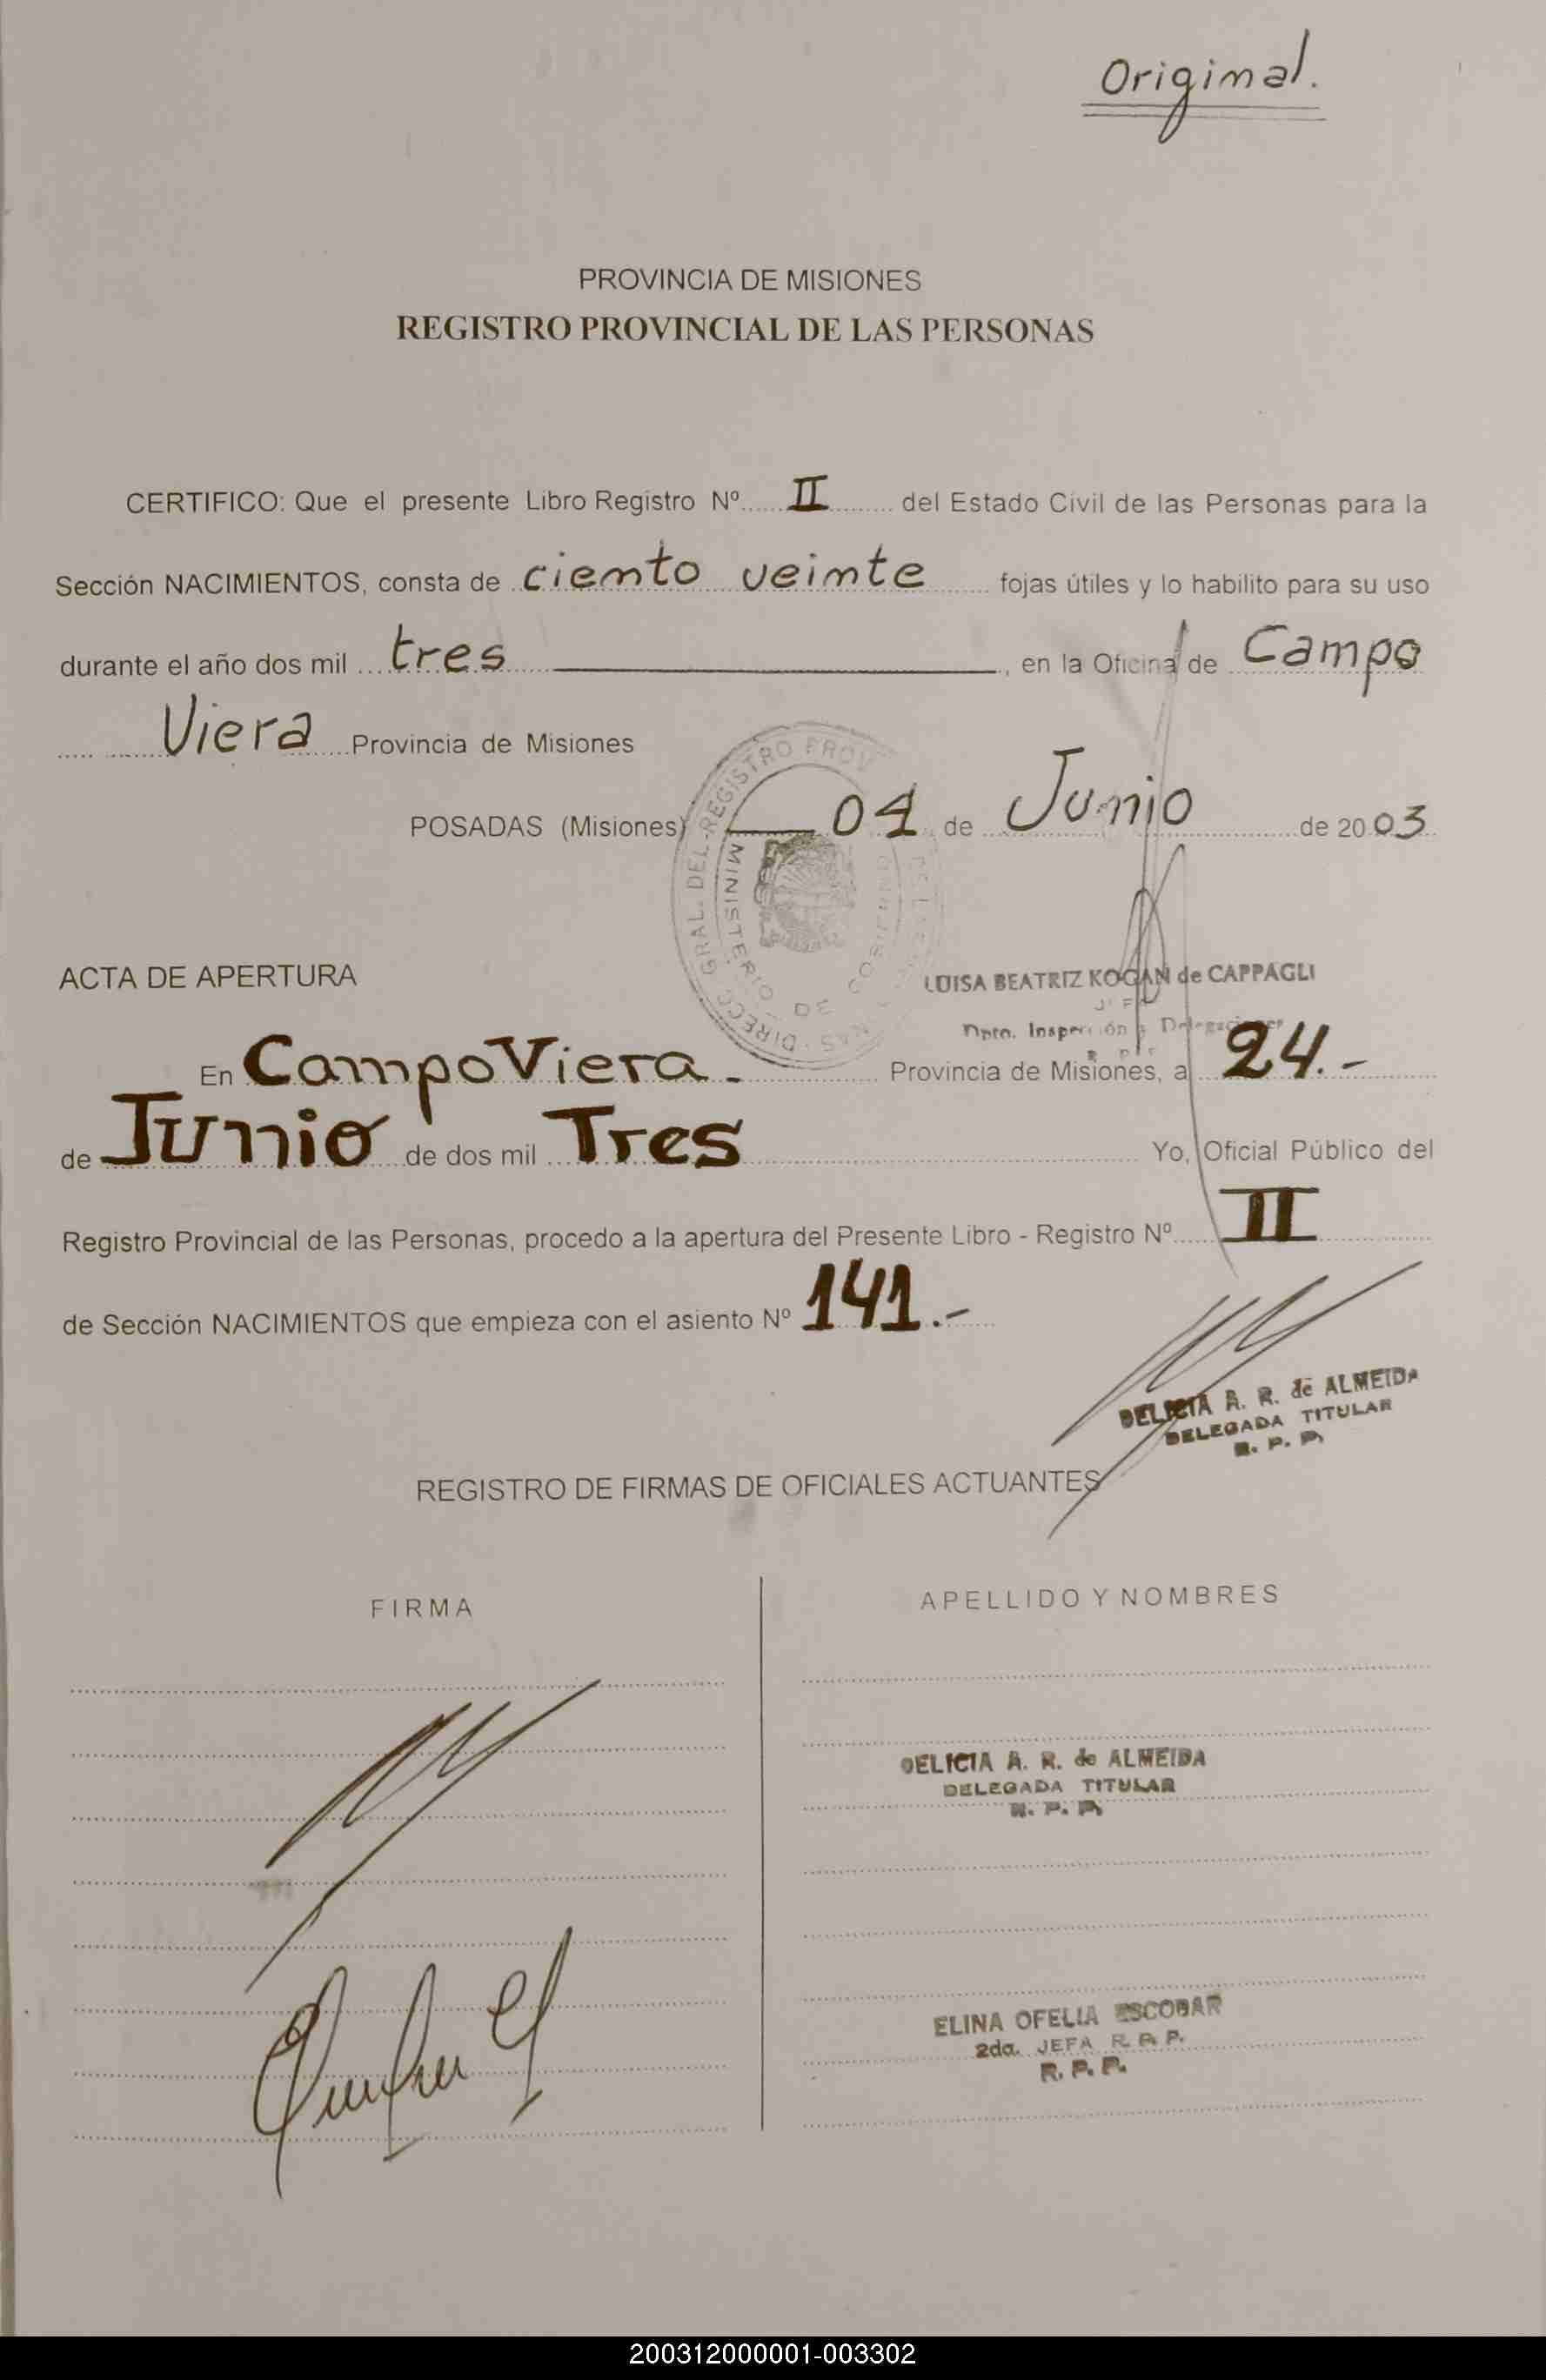 Original.
PROVINCIA DE MISIONES
REGISTRO PROVINCIAL DE LAS PERSONAS
CERTIFICO: Que el presente Libro Registro Nº II del Estado Civil de las Personas para la
Sección NACIMIENTOS, consta de ciento veinte fojas útiles y lo habilito para su uso
durante el año dos mil tres, en la Oficina de Campo
Viera Provincia de Misiones
POSADAS (Misiones) 04 de Junio de 2003
DIRECC. GRAL. DEL REGISTRO PROV
MINISTERIO DE GOBIERNO
LUISA BEATRIZ KOGAN de CAPPAGLI
Dpto. Inspección
ACTA DE APERTURA
En Campo Viera.- Provincia de Misiones, a 24.-
de Junio de dos mil Tres Yo, Oficial Público del
Registro Provincial de las Personas, procedo a la apertura del Presente Libro - Registro Nº II
de Sección NACIMIENTOS que empieza con el asiento Nº 141.-
DELICIA A. R. de ALMEIDA
DELEGADA TITULAR
R. P. P.
REGISTRO DE FIRMAS DE OFICIALES ACTUANTES
FIRMA APELLIDO Y NOMBRES
DELICIA A. R. de ALMEIDA
DELEGADA TITULAR
R. P. P.
ELINA OFELIA ESCOBAR
2da. JEFA
R. P. P.
200312000001-003302